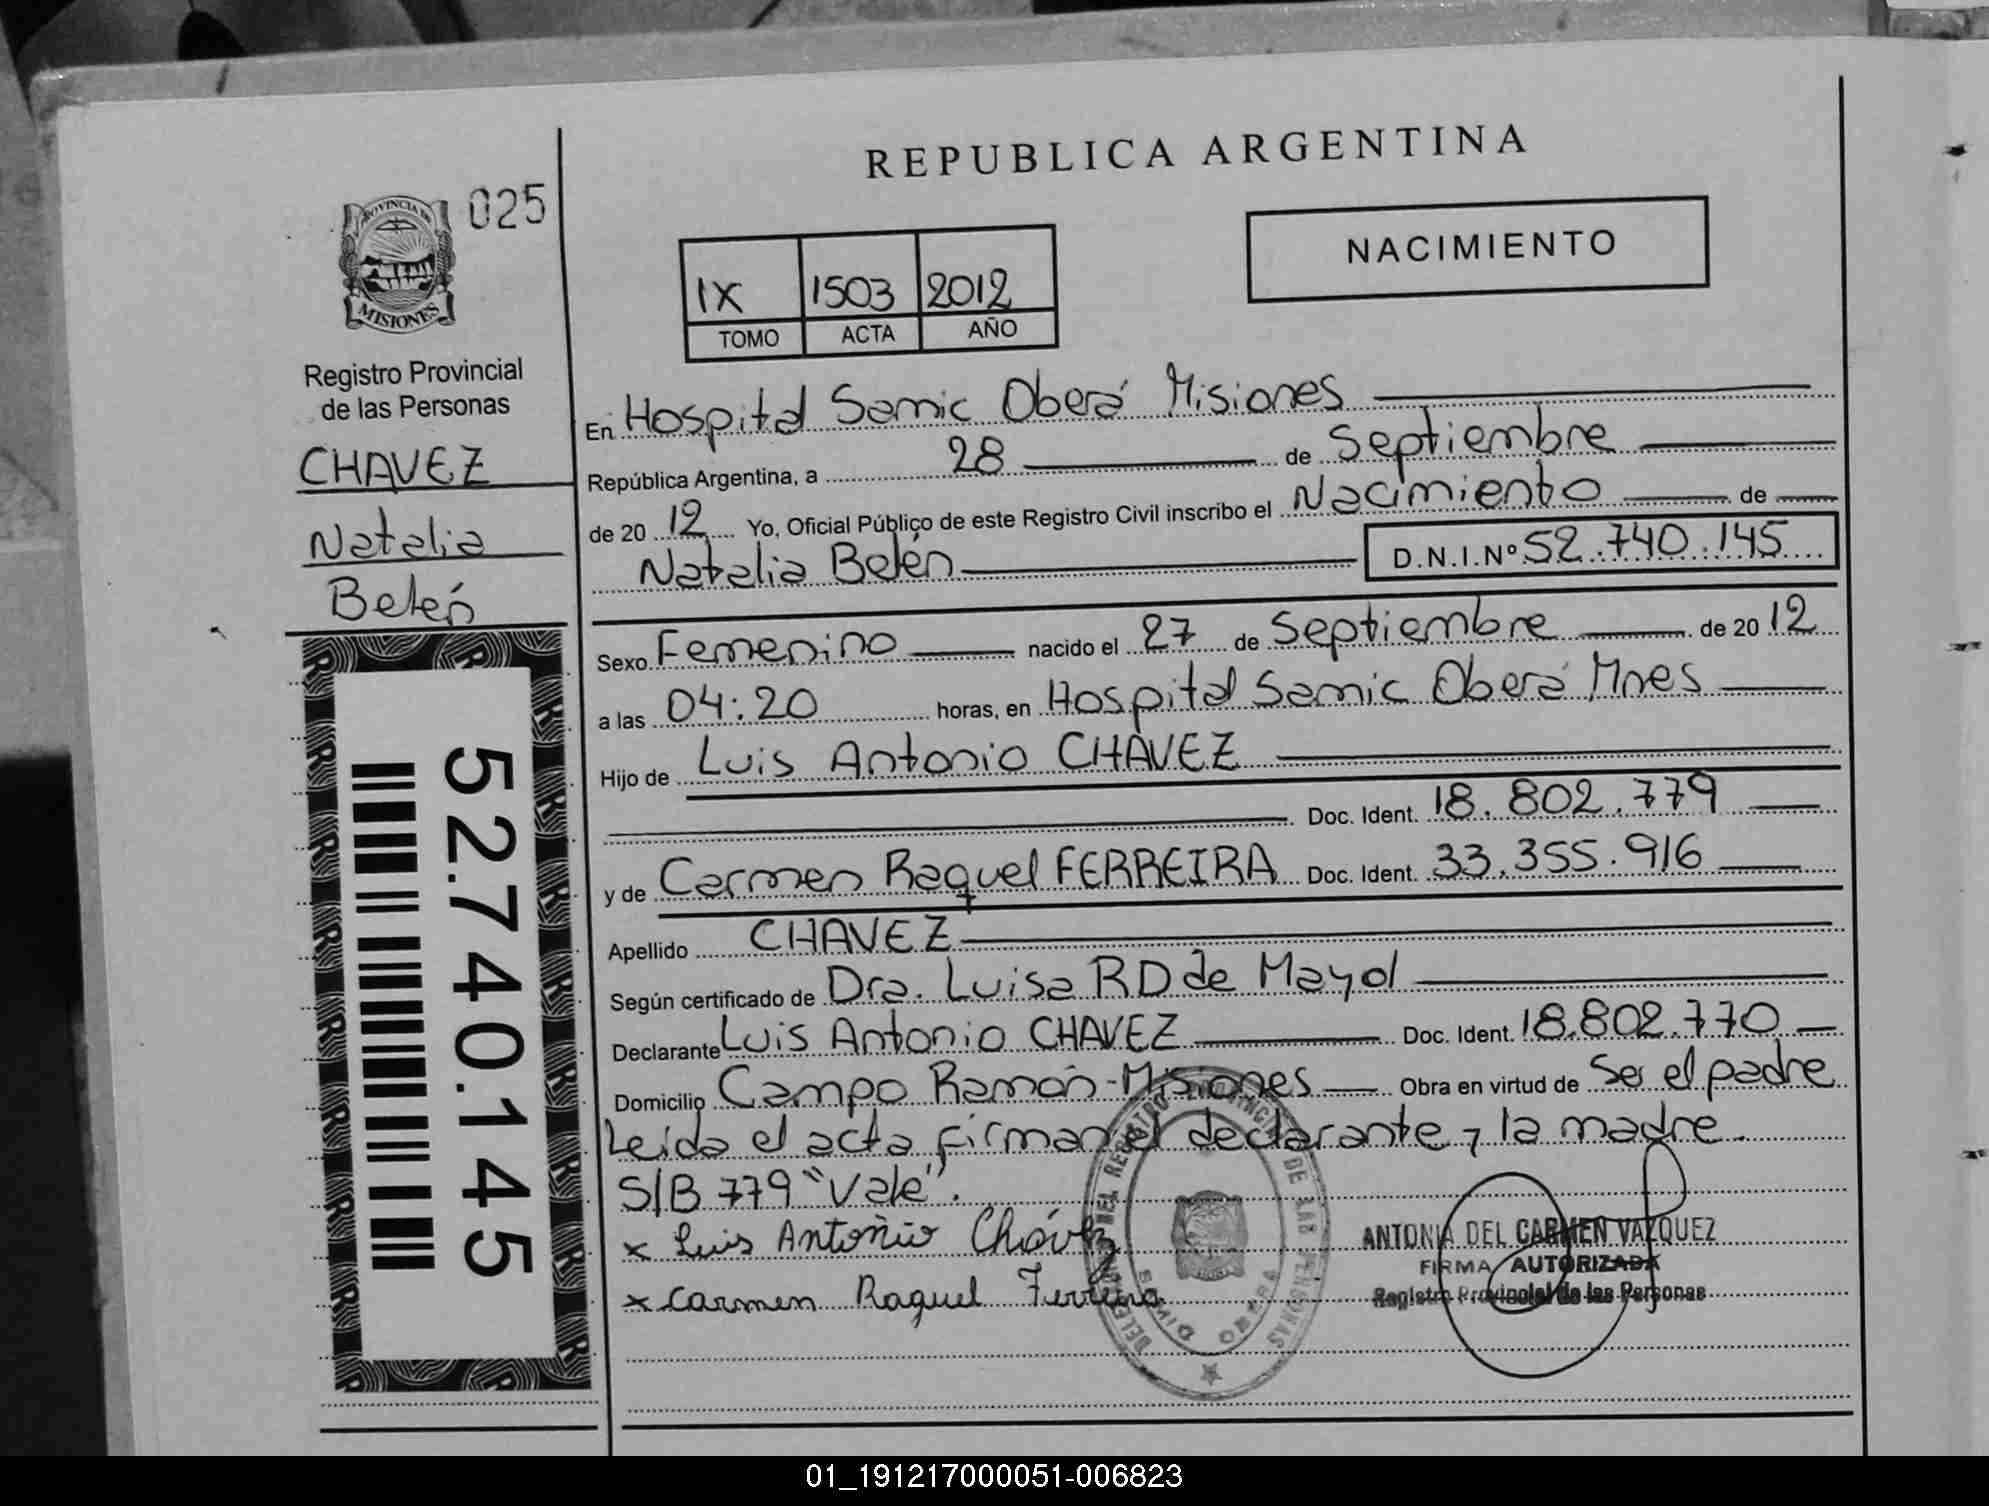 REPUBLICA ARGENTINA
025
PROVINCIA DE
MISIONES
Registro Provincial
de las Personas
CHAVEZ
Natalia
Belén
52.740.145
IX 1503 2012
TOMO ACTA AÑO
NACIMIENTO
En Hospital Samic Oberá Misiones
República Argentina, a 28 de Septiembre
de 2012 Yo, Oficial Público de este Registro Civil inscribo el Nacimiento de
Natalia Belén D.N.I.Nº 52.740.145
Sexo Femenino nacido el 27 de Septiembre de 2012
a las 04:20 horas, en Hospital Samic Oberá Mnes
Hijo de Luis Antonio CHAVEZ
Doc. Ident. 18.802.779
y de Carmen Raquel FERREIRA Doc. Ident. 33.355.916
Apellido CHAVEZ
Según certificado de Dra. Luisa RD de Mayol
Declarante Luis Antonio CHAVEZ Doc. Ident. 18.802.770
Domicilio Campo Ramón-Misiones Obra en virtud de Ser el padre
Leida el acta firman el declarante y la madre.
S/B 779 "Vale".
x Luis Antonio Chávez
x Carmen Raquel Ferreira
ANTONIA DEL CARMEN VAZQUEZ
FIRMA AUTORIZADA
Registro Provincial de las Personas
01_191217000051-006823